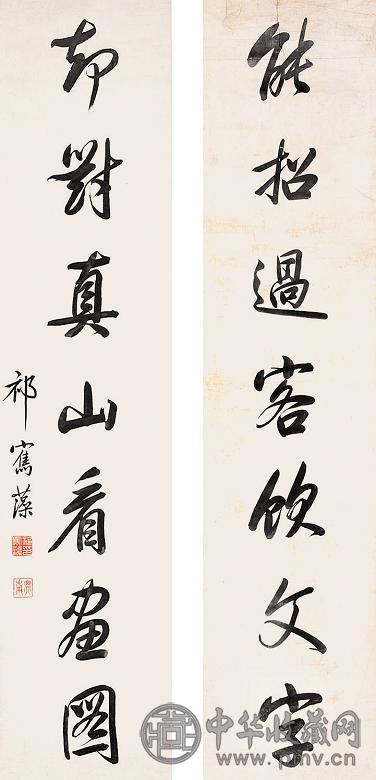 能招過客飲文字
却對真山看畫圖
祁寯藻
中华收藏网
www.pmv.cn